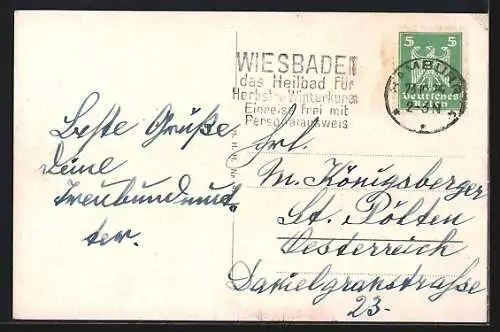 WIESBADEN
das Heilbad für
Herbst- u. Winterkuren
Einreise frei mit
Personalausweis
HAMBURG
2-3 N
5 5
Deutsches
Reich
Beste Grüße
Deine
Treubundmut-
ter.
Frl.
M. Königsberger
St. Pölten
Oesterreich
Danielgranstraße
23.